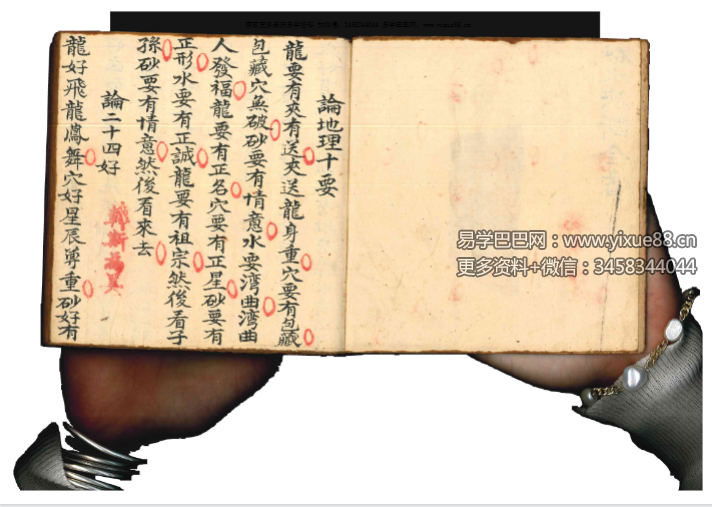 論地理十要
龍要有夾有送夾送龍身重穴要有包藏
包藏穴無破砂要有情意水要湾曲湾曲
人發福龍要有正名穴要有正星砂要有
正形水要有正誠龍要有祖宗然後看子
孫砂要有情意然後看來去
論二十四好
龍好飛龍鳳舞穴好星辰薄重砂好有
易学巴巴网：www.yixue88.cn
更多资料+微信：3458344044